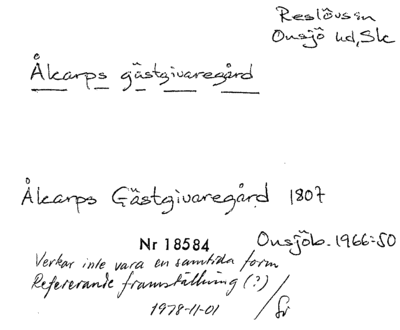 Reslövs sn
Onsjö hd, Sk
Åkarps gästgivaregård
Åkarps Gästgivaregård 1807
Nr 18584 Onsjöb. 1966:50
Verkar inte vara en samtida form
Refererande framställning (?)
1978-11-01